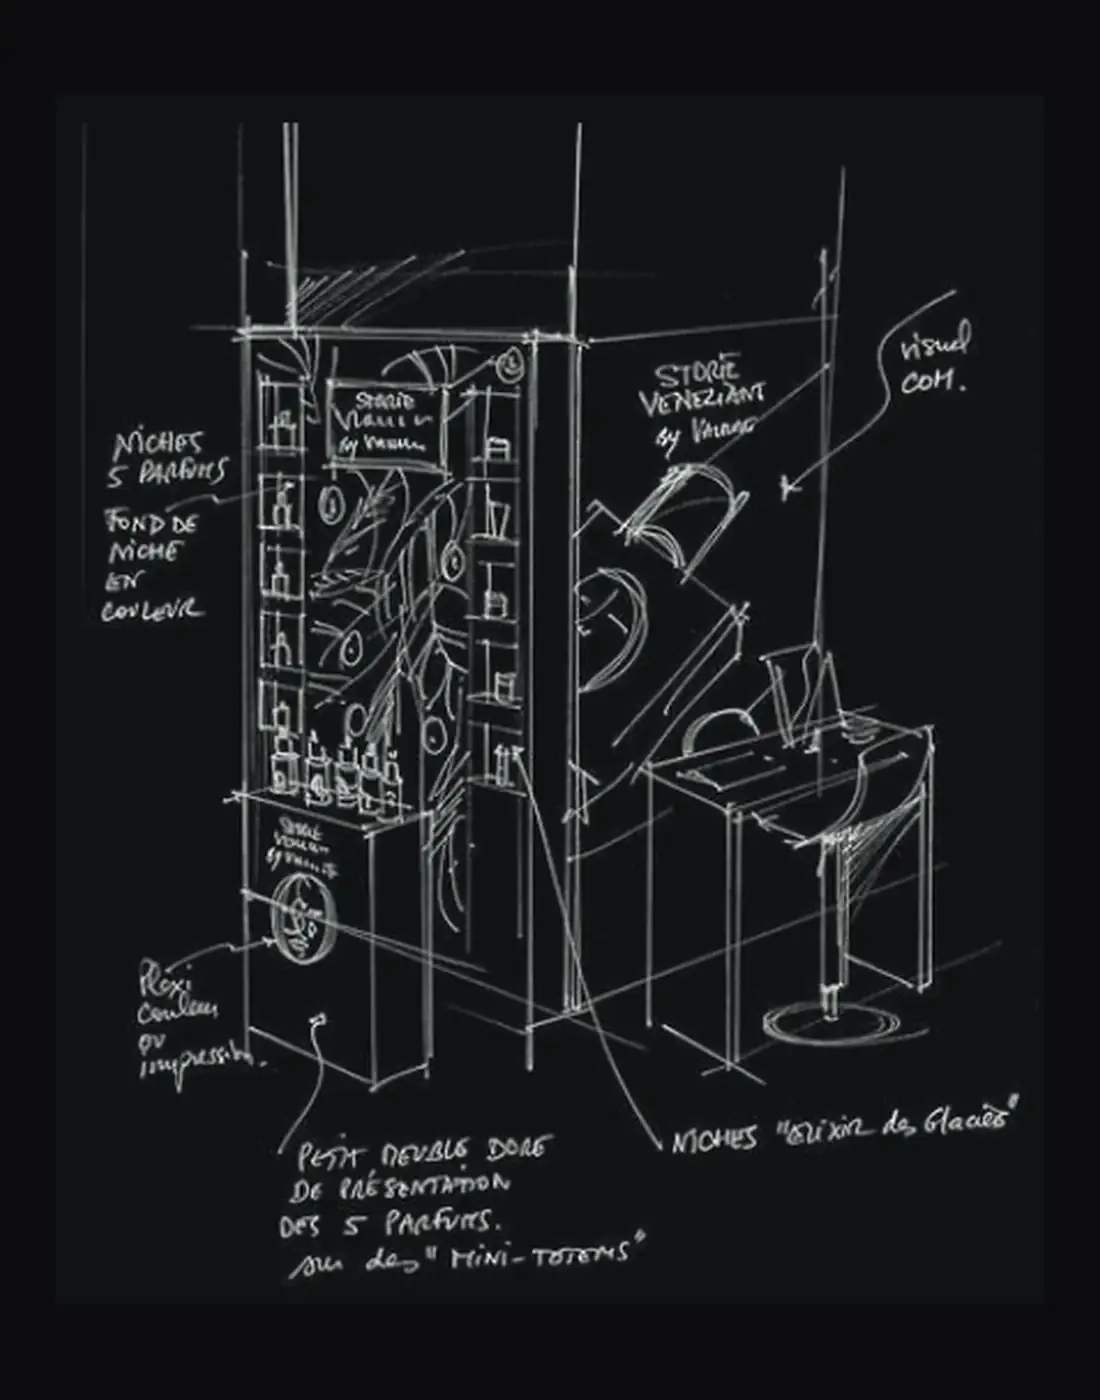 STORIE
VENEZIANE
by Valmont
visuel
COM.
STORIE
by
NICHES
5 PARFUMS
FOND DE
NICHE
EN
COULEUR
Plexi
couleur
ou
impression.
PETIT MEUBLE DORE
DE PRÉSENTATION
DES 5 PARFUMS.
sur des "MINI-TOTEMS"
NICHES "ELIXIR des Glaciers"